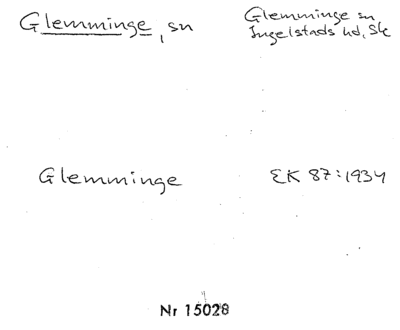 Glemminge, sn
Glemminge sn
Ingelstads hd, Sk
Glemminge
EK 87:1934
Nr 15028